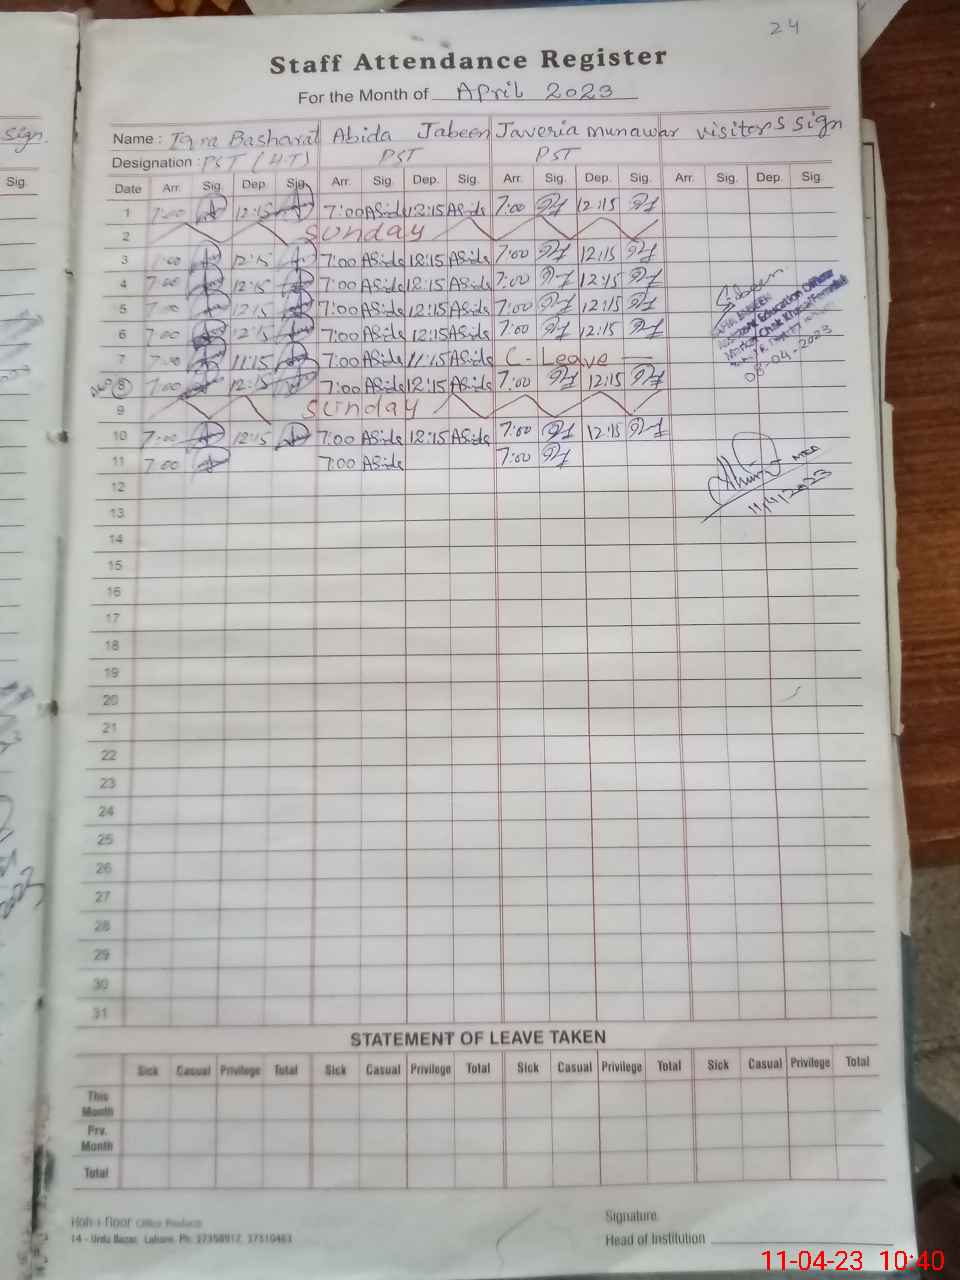 24
Staff Attendance Register
For the Month of April 2023
sign.
Name : Iqra Basharat Abida Jabeen Javeria munawar visitors sign
Designation : PST (H.T) PST PST
Sig.
Date Arr. Sig. Dep. Sig. Arr. Sig. Dep. Sig. Arr. Sig. Dep. Sig. Arr. Sig. Dep. Sig.
1 7:00 12:15 7:00 Abida 12:15 Abida 7:00 12:15
2 Sunday
3 7:00 12:15 7:00 Abida 12:15 Abida 7:00 12:15
4 7:00 12:15 7:00 Abida 12:15 Abida 7:00 12:15
5 7:00 12:15 7:00 Abida 12:15 Abida 7:00 12:15
6 7:00 12:15 7:00 Abida 12:15 Abida 7:00 12:15
7 7:00 11:15 7:00 Abida 11:15 Abida C- Leave
8 7:00 12:15 7:00 Abida 12:15 Abida 7:00 12:15
Education Officer
08-04-2023
9 Sunday
10 7:00 12:15 7:00 Abida 12:15 Abida 7:00 12:15
11 7:00 7:00 Abida 7:00
MEA
11/4/2023
12
13
14
15
16
17
18
19
20
21
22
23
24
25
26
27
28
29
30
31
STATEMENT OF LEAVE TAKEN
Sick Casual Privilege Total Sick Casual Privilege Total Sick Casual Privilege Total Sick Casual Privilege Total
This Month
Prv. Month
Total
Koh-i-Noor Office Products
14 - Urdu Bazar, Lahore. Ph: 37358912, 37310463
Signature
Head of Institution
11-04-23 10:40